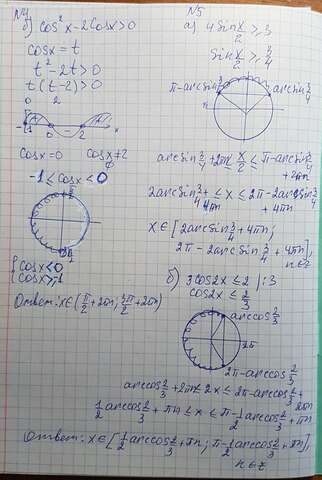 N4
б) cos²x-2cosx>0
cosx=t
t²-2t>0
t(t-2)>0
0 2
-1 0 2 x
cosx=0 cosx≠2
∅
-1≤cosx<0
{cosx<0
{cosx≥-1
Ответ: x∈(π/2+2πn; 3π/2+2πn)
N5
а) 4sin x/2 ≥ 3
sin x/2 ≥ 3/4
π-arcsin 3/4 arcsin 3/4
π
arcsin 3/4 +2πn ≤ x/2 ≤ π-arcsin 3/4 +2πn
2arcsin 3/4 +4πn ≤ x ≤ 2π-2arcsin 3/4 +4πn
x∈[2arcsin 3/4 +4πn;
2π-2arcsin 3/4 +4πn],
n∈z
б) 3cos2x≤2 |:3
cos2x ≤ 2/3
arccos 2/3
2π
2π-arccos 2/3
arccos 2/3 +2πn ≤ 2x ≤ 2π-arccos 2/3 +2πn
1/2 arccos 2/3 +πn ≤ x ≤ π-1/2 arccos 2/3 +πn
Ответ: x∈[1/2 arccos 2/3 +πn; π-1/2 arccos 2/3 +πn],
n∈z